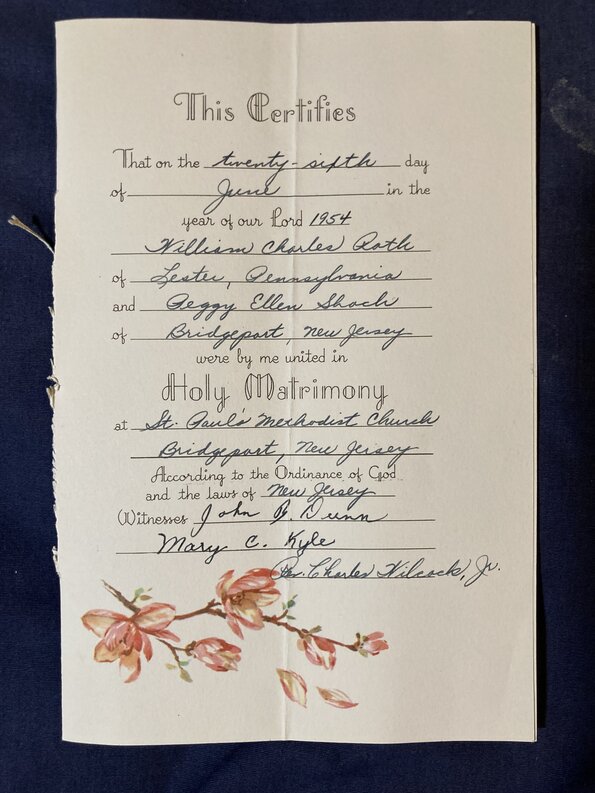 This Certifies
That on the twenty-sixth day
of June in the
year of our Lord 1954
William Charles Roth
of Lester, Pennsylvania
and Peggy Ellen Shoch
of Bridgeport, New Jersey
were by me united in
Holy Matrimony
at St. Paul's Methodist Church
Bridgeport, New Jersey
According to the Ordinance of God
and the laws of New Jersey
Witnesses John B. Dunn
Mary C. Kyle
Rev. Charles Wilcock, Jr.